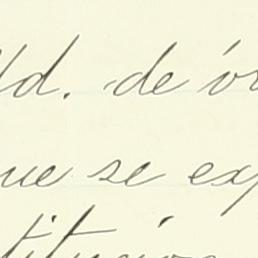 Ud. de ór
que se exp
titución